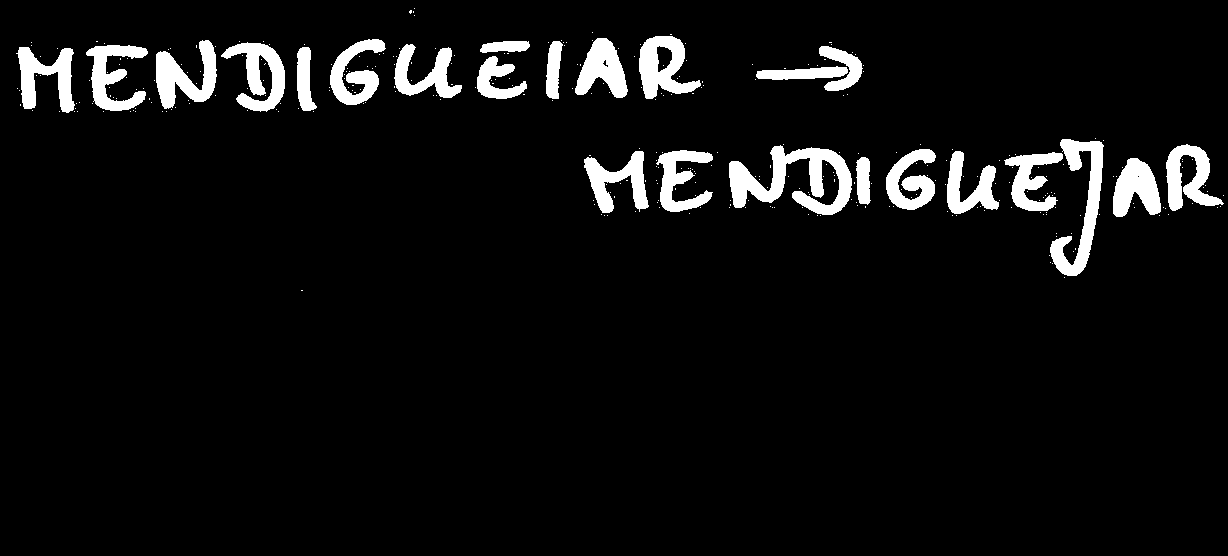 MENDIGUEIAR →
MENDIGUEJAR